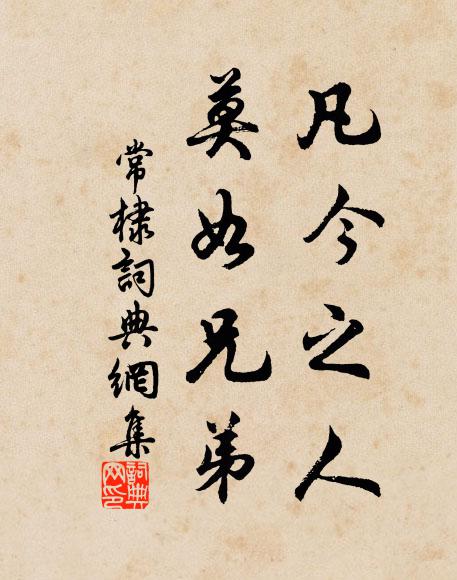 凡今之人
莫如兄弟
常棣詞典網集
詞典網印